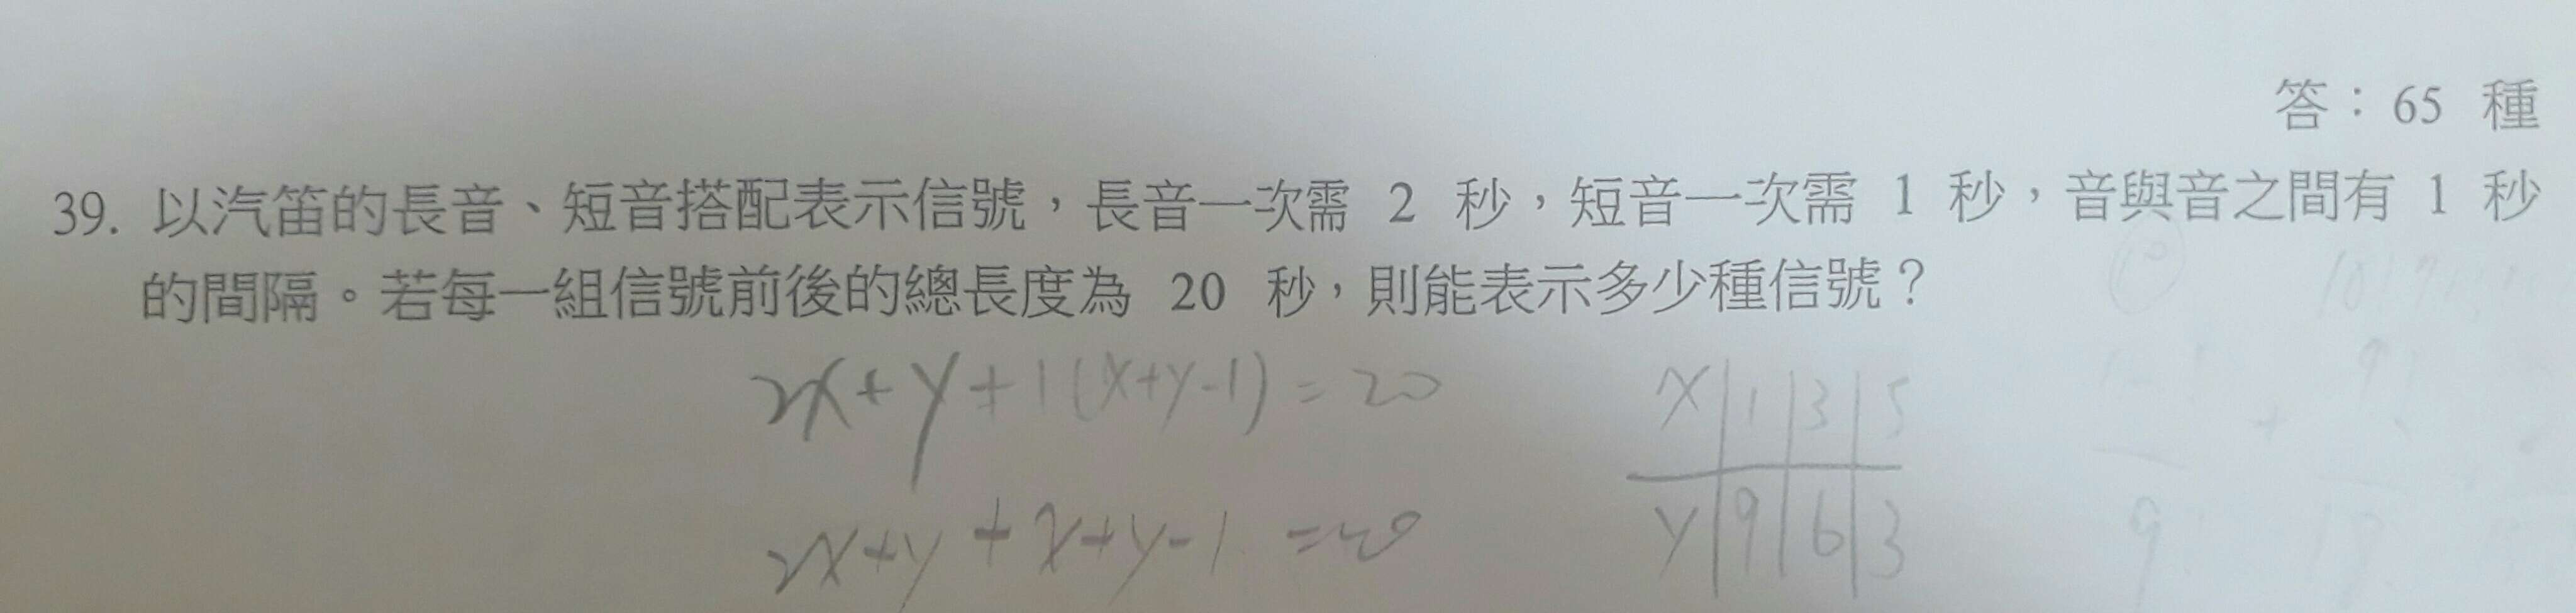 答：65 種
39. 以汽笛的長音、短音搭配表示信號，長音一次需 2 秒，短音一次需 1 秒，音與音之間有 1 秒
的間隔。若每一組信號前後的總長度為 20 秒，則能表示多少種信號？
2x+y+1(x+y-1)=20
x 1 3 5
y 9 6 3
2x+y+x+y-1=20